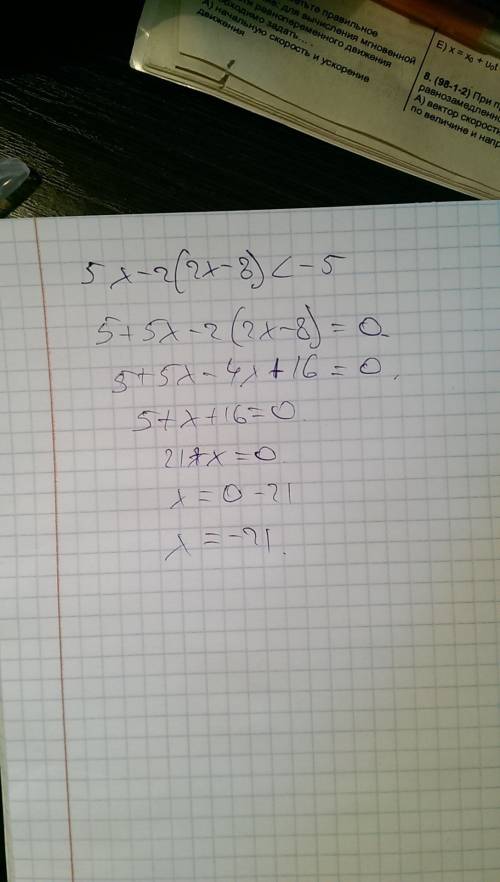 тьте правильное
для вычисления мгновенной
равнопеременного движения
обходимо задать... .
А) начальную скорость и ускорение
движения
E) x = x₀ + υ₀t
8. (98-1-2) При
равнозамедленно
А) вектор скорост
по величине и напр
5x-2(2x-8)<-5
5+5x-2(2x-8)=0.
5+5x-4x+16=0,
5+x+16=0.
21+x=0
x=0-21
x=-21.